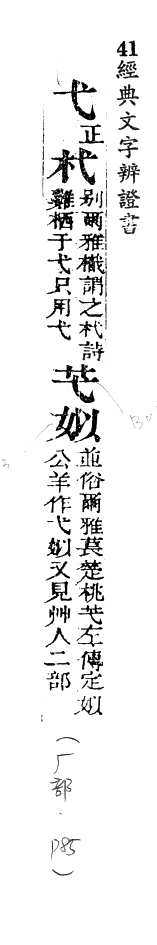 41經典文字辨證書
弋正杙别爾雅樴謂之杙詩
雞栖于弋只用弋
芅㚤並俗爾雅萇楚銚芅左傳定㚤
公羊作弋㚤又見艸人二部
(厂部.P85)